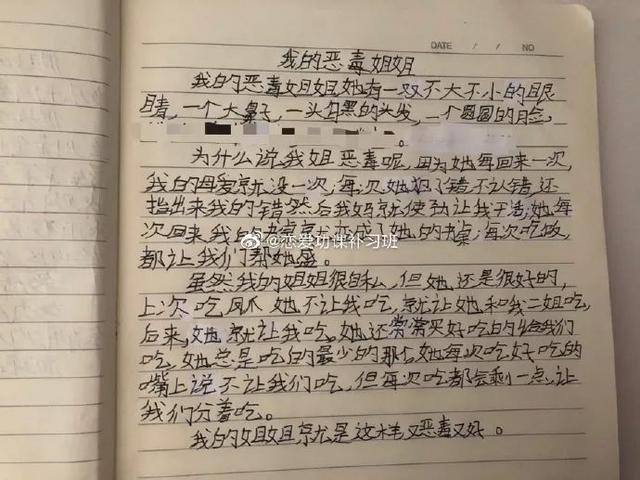 DATE / / NO
我的恶毒姐姐
我的恶毒姐姐她有一双不大不小的眼
睛，一个大鼻子，一头乌黑的头发，一个圆圆的脸，
。
为什么说我姐恶毒呢，因为她每回来一次，
我的母爱就没一次，每次她犯了错不认错还
指出来我的错然后我妈就使劲让我干活；她每
次回来我的书桌就变成了她的书桌；每次吃饭，
都让我们帮她盛。
@恋爱功课补习班
虽然我的姐姐很自私，但她还是很好的，
上次吃凤爪她不让我吃，就让她和我二姐吃，
后来，她就让我吃。她还常常买好吃的给我们
吃，她总是吃的最少的那个她每次吃好吃的
嘴上说不让我们吃，但每次吃都会剩一点，让
我们分着吃。
我的姐姐就是这样又恶毒又好。